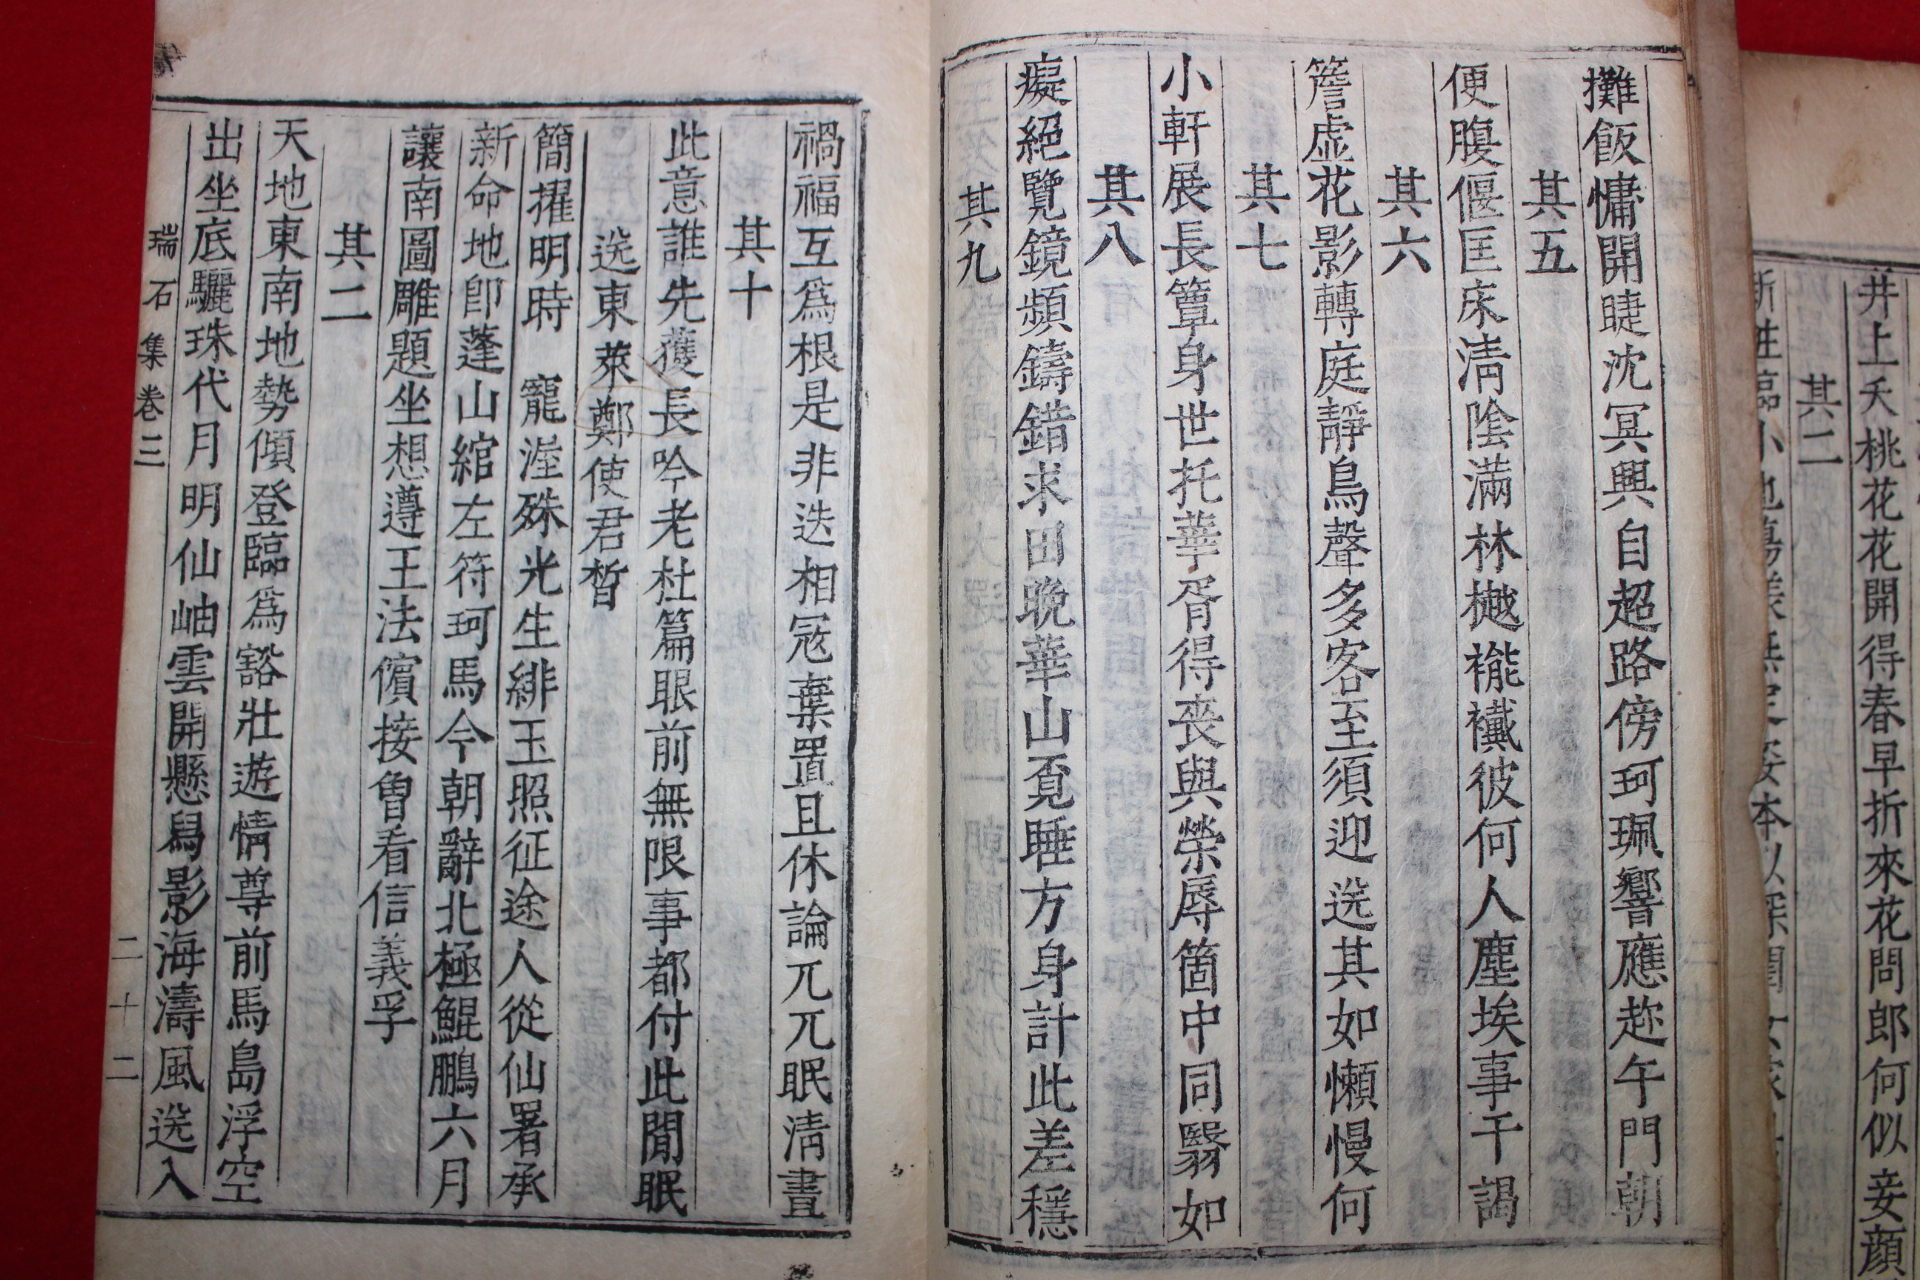 井上夭桃花花開得春早折來花問郎何似妾顔
其二
攤飯慵開睫沈冥興自超路傍珂珮響應趂午門朝
其五
便腹偃匡床淸陰滿林樾褦襶彼何人塵埃事干謁
其六
簷虛花影轉庭靜鳥聲多客至須迎送其如懶慢何
其七
小軒展長簟身世托華胥得喪與榮辱箇中同翳如
其八
癡絕覽鏡頻鑄錯求田晩華山覓睡方身計此差穩
其九
禍福互爲根是非迭相寇棄置且休論兀兀眠淸晝
其十
此意誰先獲長吟老杜篇眼前無限事都付此閒眠
送東萊鄭使君晳
簡擢明時 寵渥殊光生緋玉照征途人從仙署承
新命地卽蓬山綰左符珂馬今朝辭北極鯤鵬六月
讓南圖雕題坐想遵王法儐接曾看信義孚
其二
天地東南地勢傾登臨爲豁壯遊情尊前馬島浮空
出坐底驪珠代月明仙岫雲開懸舄影海濤風送入
瑞石集卷三
二十二